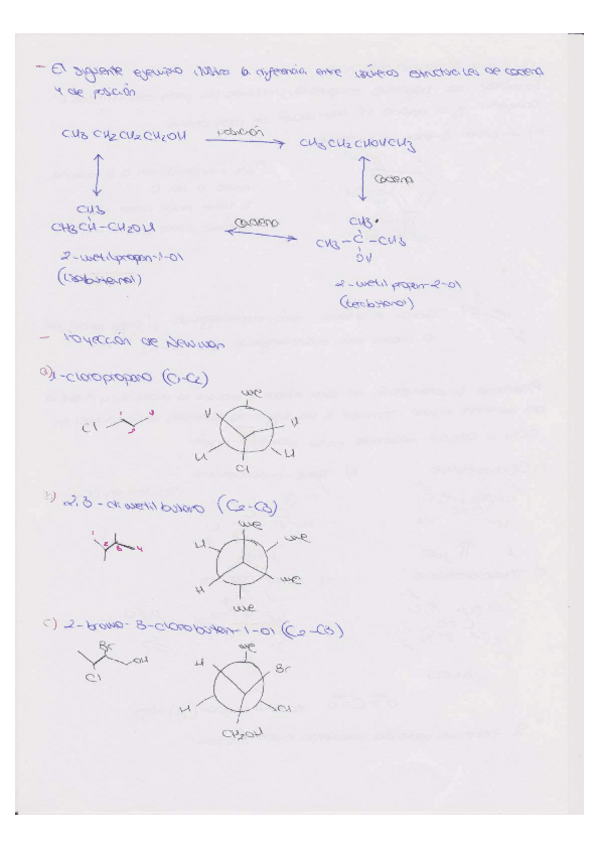 - El siguiente ejemplo ilustra la diferencia entre isómeros estructurales de cadena
y de posición
CH3 CH2CH2CH2OH posición CH3CH2CHOHCH3
cadena
CH3
CH3CH-CH2OH
cadena
CH3
CH3-C-CH3
OH
2-metilpropan-1-ol
(isobutanol)
2-metilpropan-2-ol
(terbutanol)
- Proyección de Newman
a) 1-cloropropano (C1-C2)
Cl
Me
H H
H H
Cl
b) 2,3-dimetilbutano (C2-C3)
1 2 3 4
Me
H Me
H Me
Me
c) 2-bromo-3-clorobutan-1-ol (C2-C3)
Br
OH
Cl
Me
H Br
H Cl
CH2OH